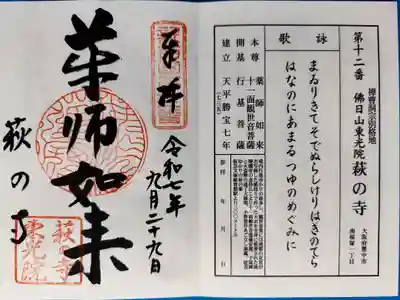 第十二番
禅曹洞宗別格地
佛日山東光院 萩の寺
大阪府豊中市
南桜塚一丁目
詠歌
まゐりきてそでぬらしけりはぎのてら
はなのにあまるつゆのめぐみに
本尊 薬師如来
十一面観世音菩薩
開基 行基菩薩
建立 天平勝宝七年
(七三五)
参拝 年 月 日
奉拝
令和七年
九月二十九日
薬師如来
萩の寺
萩の寺
東光院